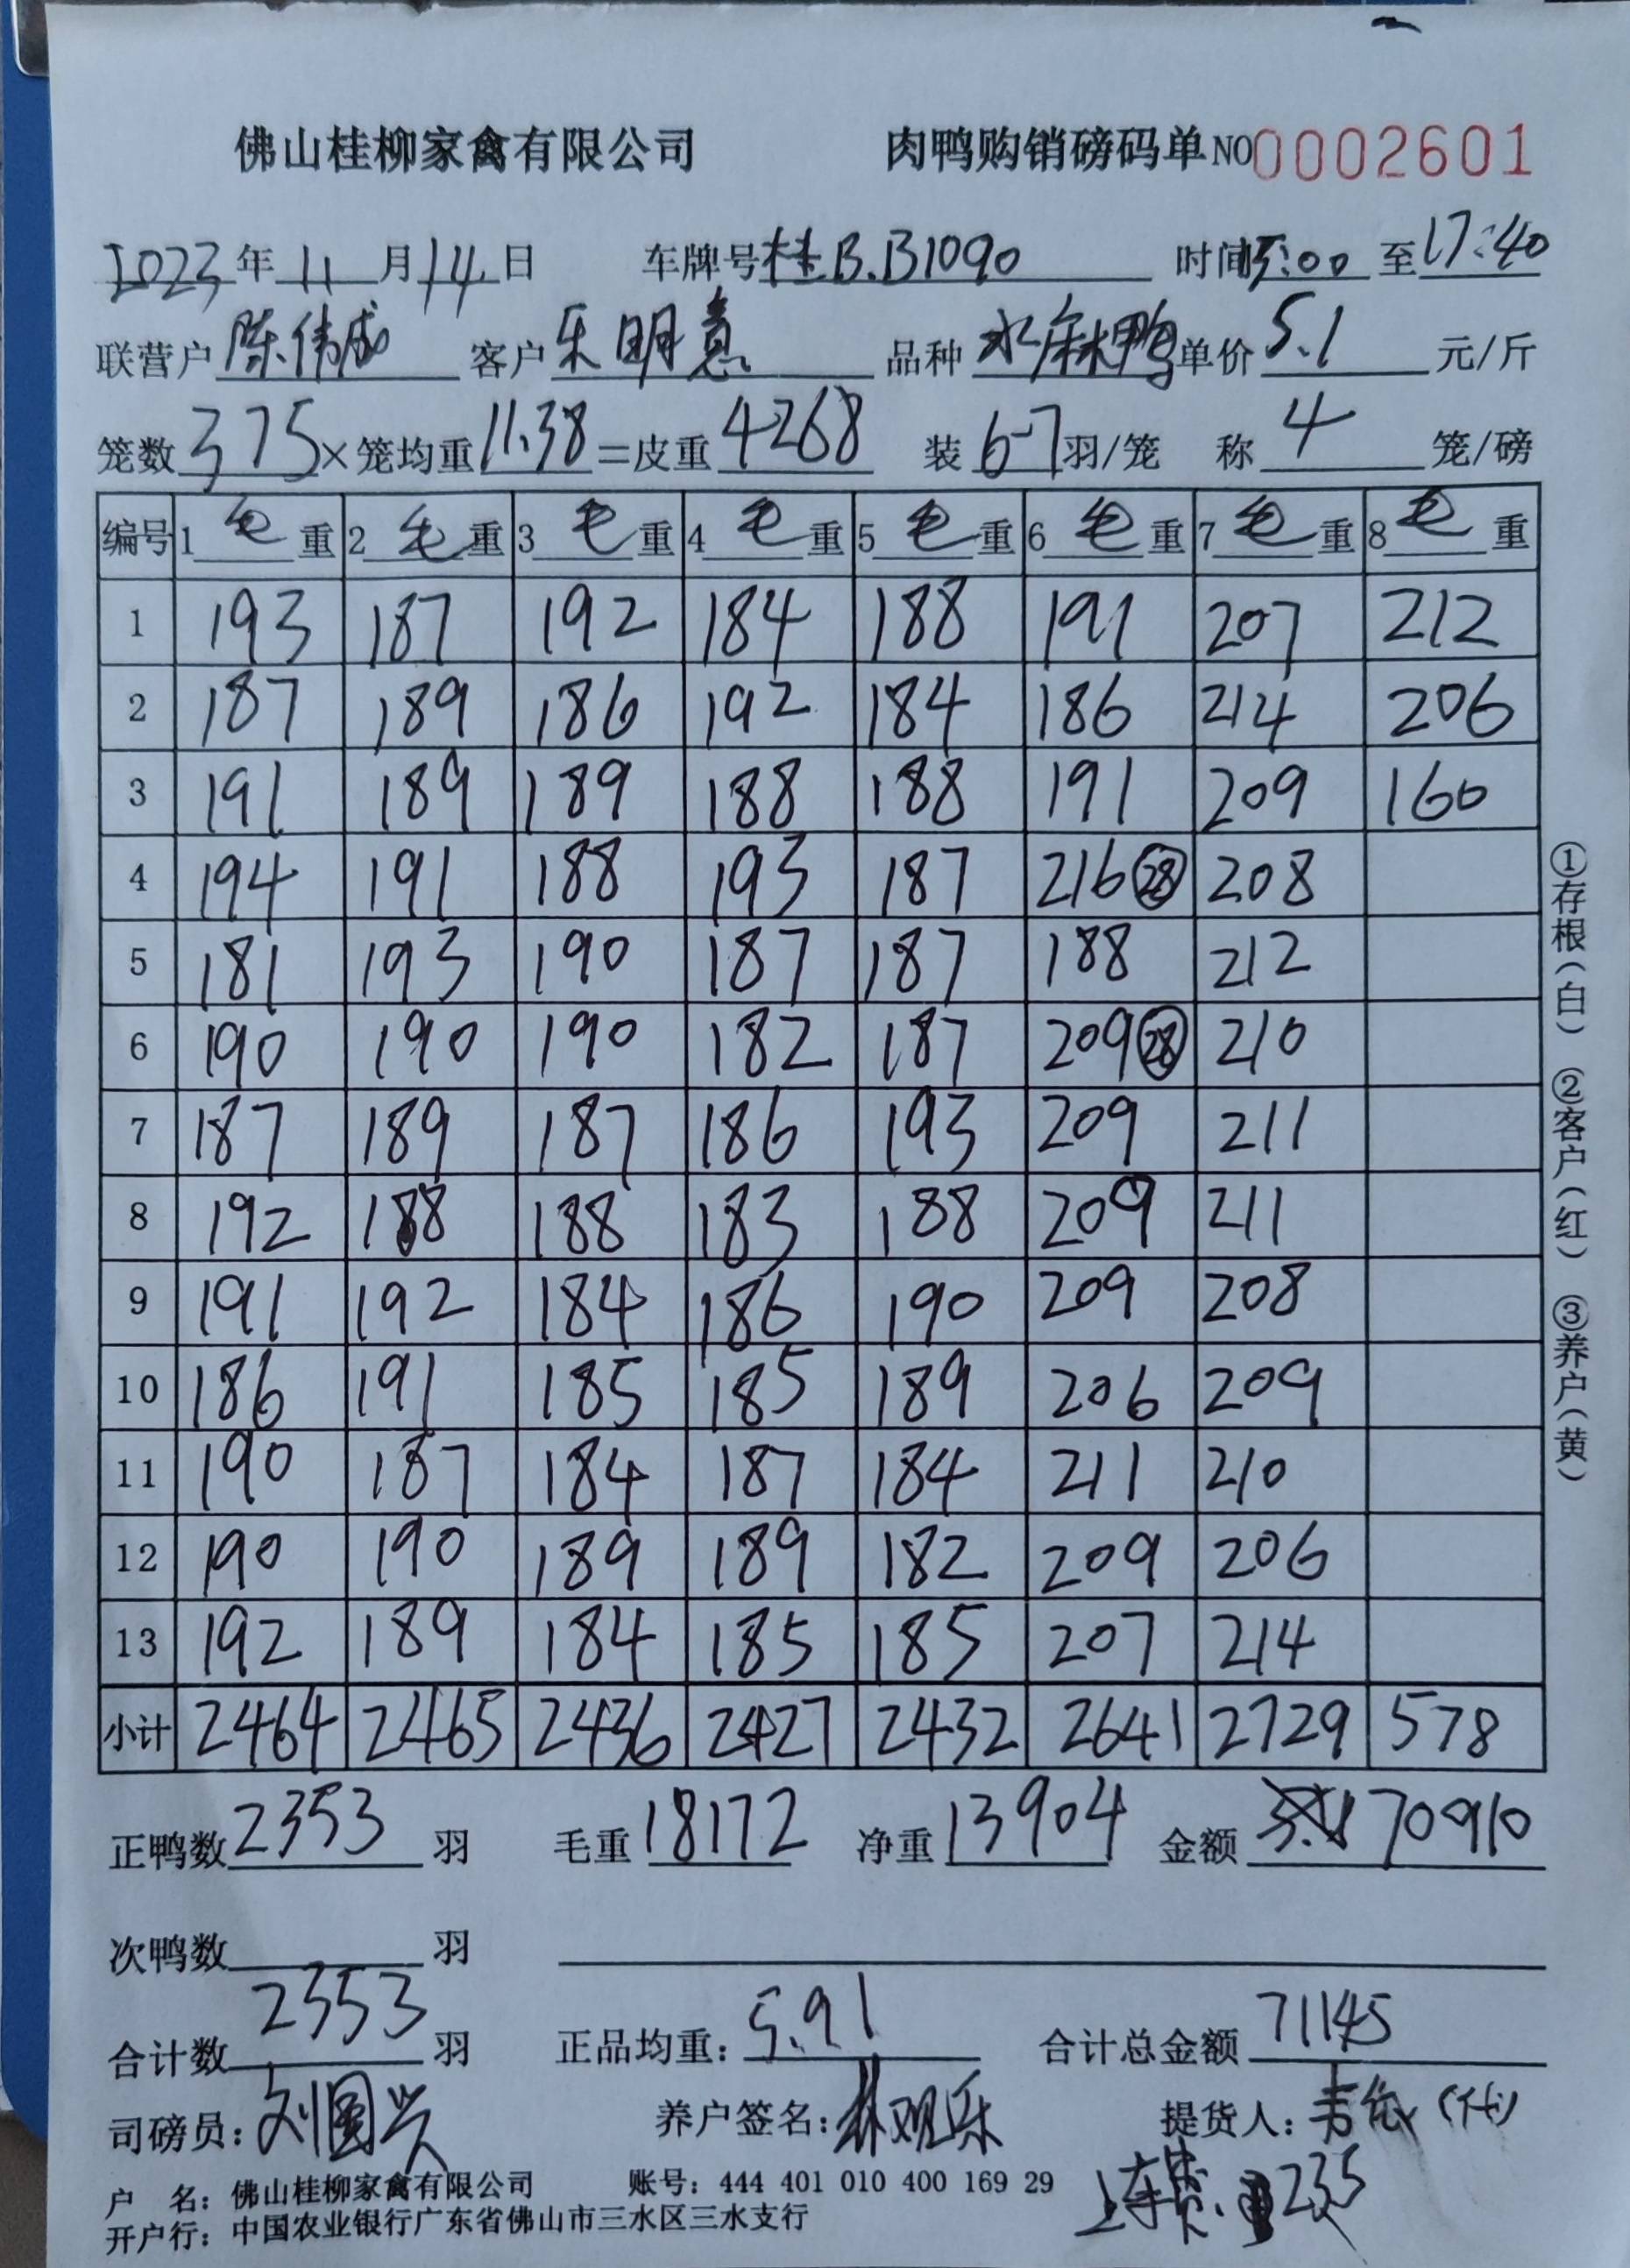 佛山桂柳家禽有限公司 肉鸭购销磅码单 NO0002601
2023年11月14日 车牌号桂B.B1090 时间15:00至17:40
联营户陈伟成 客户乐明意 品种水麻鸭 单价5.1元/斤
笼数375×笼均重11.38=皮重4268 装6-7羽/笼 称4笼/磅
编号 1毛重 2毛重 3毛重 4毛重 5毛重 6毛重 7毛重 8毛重
1 193 187 192 184 188 191 207 212
2 187 189 186 192 184 186 214 206
3 191 189 189 188 188 191 209 160
4 194 191 188 193 187 216㉘ 208
5 181 193 190 187 187 188 212
6 190 190 190 182 187 209㉘ 210
7 187 189 187 186 193 209 211
8 192 188 188 183 188 209 211
9 191 192 184 186 190 209 208
10 186 191 185 185 189 206 209
11 190 187 184 187 184 211 210
12 190 190 189 189 182 209 206
13 192 189 184 185 185 207 214
小计 2464 2465 2436 2427 2432 2641 2729 578
①存根(白) ②客户(红) ③养户(黄)
正鸭数2353羽 毛重18172 净重13904 金额70910
次鸭数 羽
合计数2353羽 正品均重:5.91 合计总金额71145
司磅员:刘国兴 养户签名: 提货人: (代)
上车费 235
户 名:佛山桂柳家禽有限公司 账号:444 401 010 400 169 29
开户行:中国农业银行广东省佛山市三水区三水支行